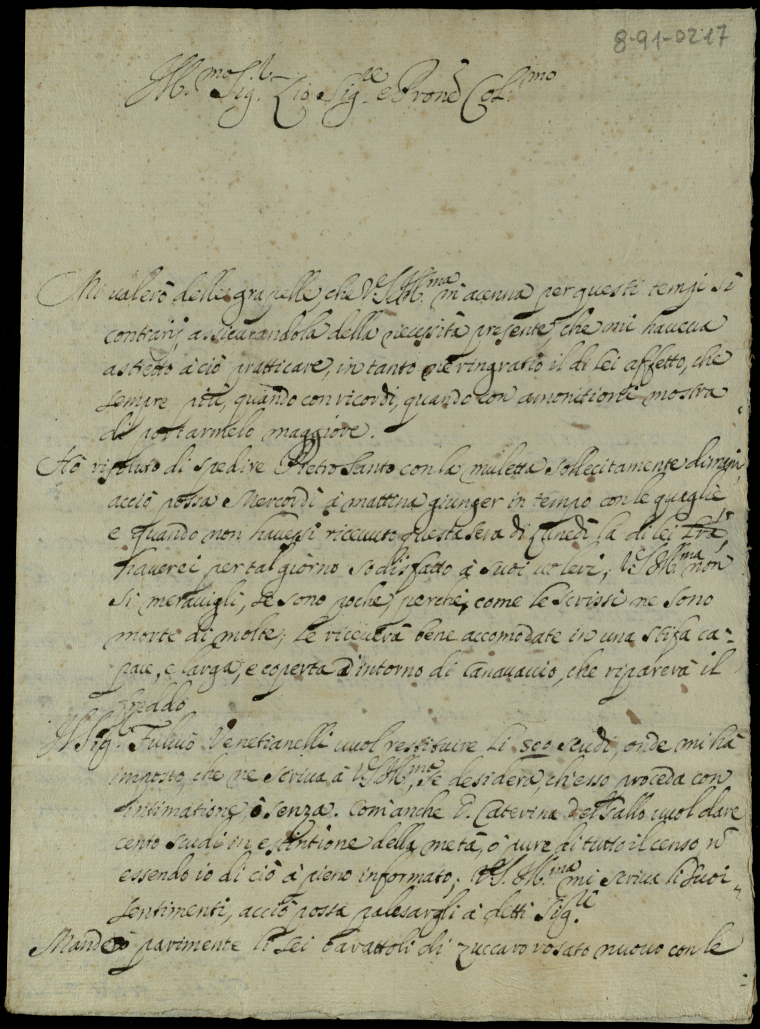 8-91-0217
Ill.mo Sig.r Zio Sig.re e Pron Col.mo
Mi valerò delle grapelle, che V.S. Ill.ma m'acenna per questi tempi sì
contrarij, assicurandola della necessità presente, che mi haveva
astretto à ciò pratticare, in tanto ne ringratio il di lei affetto, che
sempre più, quando con ricordi, quando con amonitioni mostra
di portarmelo maggiore.
Hò risoluto di spedire Pietro Santo con la muletta sollecitamente
acciò possa Mercordì à mattina giunger in tempo con le quaglie
e quando non havessi ricevuto questa sera di Lunedì la di lei lra,
haverei per tal giorno sodisfatto à suoi voleri; V.S. Ill.ma non
si meravigli, se sono poche, perche, come le scrissi me sono
morte di molte; le riceverà bene accomodate in una stifa ca-
pace, e larga, e coperta d'intorno di canavaccio, che riparerà il
freddo.
Il Sig. Fulvio Venetianelli vuol restituire li 500 scudi, onde mi hà
imposto, che ne scriva à V.S. Ill.ma, se desidera, ch'esso proceda con
intimatione, ò senza. Com'anche D. Caterina del Gallo vuol dare
cento scudi in estintione della metà, ò pure di tutto il censo nō
essendo io di ciò à pieno informato; V.S. Ill.ma mi scriva li suoi
sentimenti, acciò possa palesargli à detti Sig.ri
Manderò parimente li sei barattoli di zuccaro rosato nuovo con le